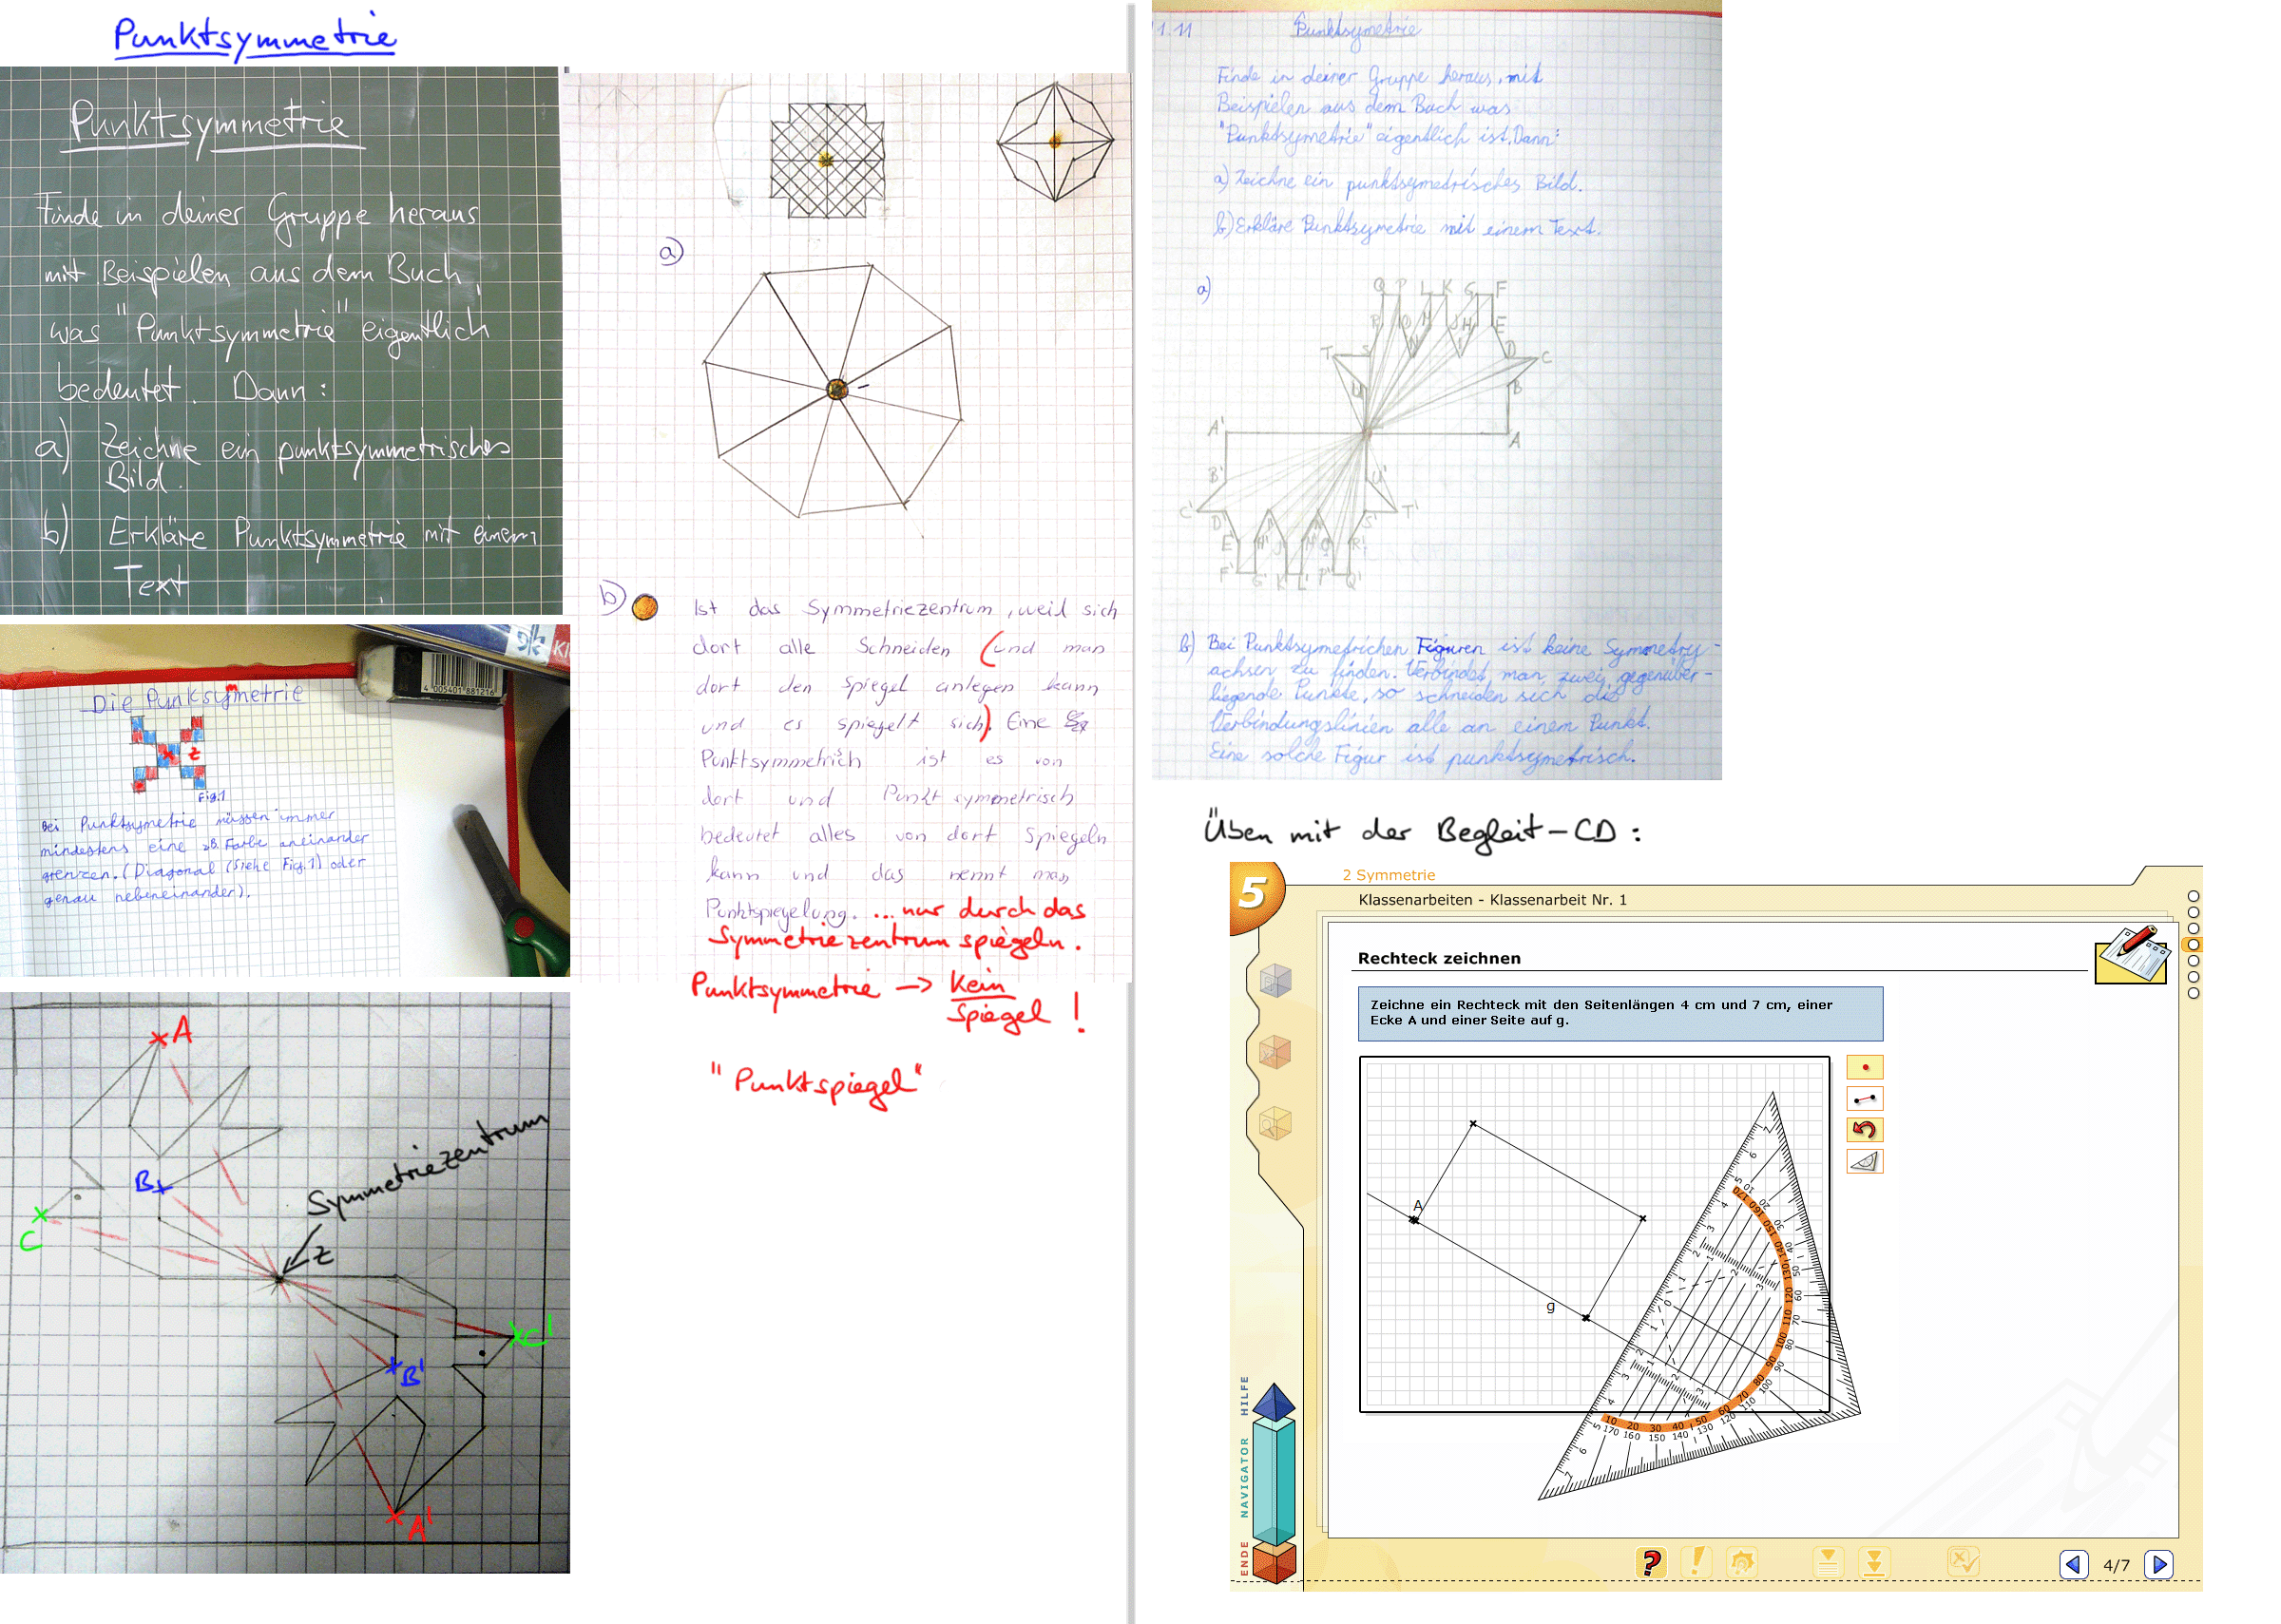 Punktsymmetrie
Punktsymmetrie
Finde in deiner Gruppe heraus
mit Beispielen aus dem Buch,
was "Punktsymmetrie" eigentlich
bedeutet. Dann:
a) Zeichne ein punktsymmetrisches
Bild.
b) Erkläre Punktsymmetrie mit einem
Text
Die Punksymmetrie
z
Fig.1
Bei Punktsymetrie müssen immer
mindestens eine zB. Farbe aneinander
grenzen. (Diagonal (siehe Fig.1) oder
genau nebeneinander).
4 005401 881216
A
B
C
Symmetriezentrum
Z
C'
B'
A'
a)
b)
Ist das Symmetriezentrum, weil sich
dort alle Schneiden (und man
dort den Spiegel anlegen kann
und es spiegelt sich). Eine
Punktsymmetrich ist es von
dort und Punktsymmetrisch
bedeutet alles von dort Spiegeln
kann und das nennt man
Punktspiegelung. ... nur durch das
Symmetriezentrum spiegeln.
Punktsymmetrie -> Kein
Spiegel !
"Punktspiegel"
1.11 Punktsymetrie
Finde in deiner Gruppe heraus, mit
Beispielen aus dem Buch was
"Punktsymetrie" eigentlich ist. Dann:
a) Zeichne ein punktsymetrisches Bild.
b) Erkläre Punktsymetrie mit einem Text.
a)
Q P L K G F
R O M J H E
T S D C
U B
A' A
B' U'
C' D' S' T'
E' H' R'
F' G' K' L' P' Q'
b) Bei Punktsymetrichen Figuren ist keine Symmetry-
achsen zu finden. Verbindet man zwei gegenüber-
liegende Punkte, so schneiden sich die
Verbindungslinien alle an einem Punkt.
Eine solche Figur ist punktsymetrisch.
Üben mit der Begleit-CD:
5
2 Symmetrie
Klassenarbeiten - Klassenarbeit Nr. 1
Rechteck zeichnen
Zeichne ein Rechteck mit den Seitenlängen 4 cm und 7 cm, einer
Ecke A und einer Seite auf g.
A
g
HILFE
NAVIGATOR
ENDE
4/7